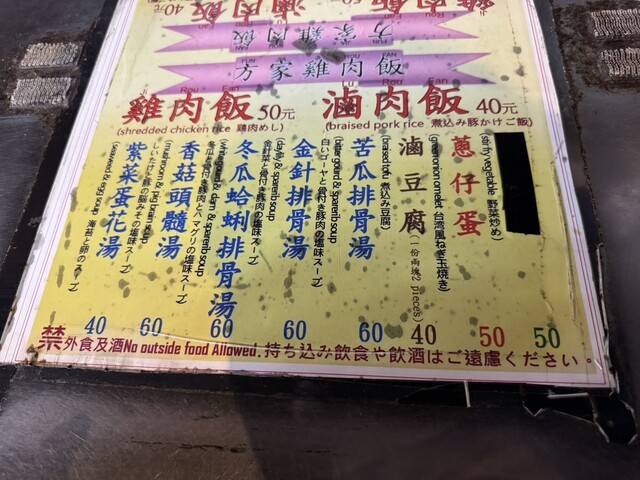 方家雞肉飯
雞肉飯 50元
(shredded chicken rice 鶏肉めし)
滷肉飯 40元
(braised pork rice 煮込み豚かけご飯)
野菜炒め) 50
蔥仔蛋 50
台湾風ねぎ玉焼き)
滷豆腐(一份兩塊2 pieces) 40
(braised tofu 煮込み豆腐)
苦瓜排骨湯 60
(bitter gourd & sparerib soup
白いゴーヤと骨付き豚肉の塩味スープ)
金針排骨湯 60
(daylily & sparerib soup
金針菜と骨付き豚肉の塩味スープ)
冬瓜蛤蜊排骨湯 60
冬瓜と骨付き豚肉とハマグリの塩味スープ)
香菇頭髓湯 60
しいたけと豚の脳みその塩味スープ)
紫菜蛋花湯 40
(seaweed & egg soup 海苔と卵のスープ)
禁外食及酒No outside food Allowed.持ち込み飲食や飲酒はご遠慮ください。